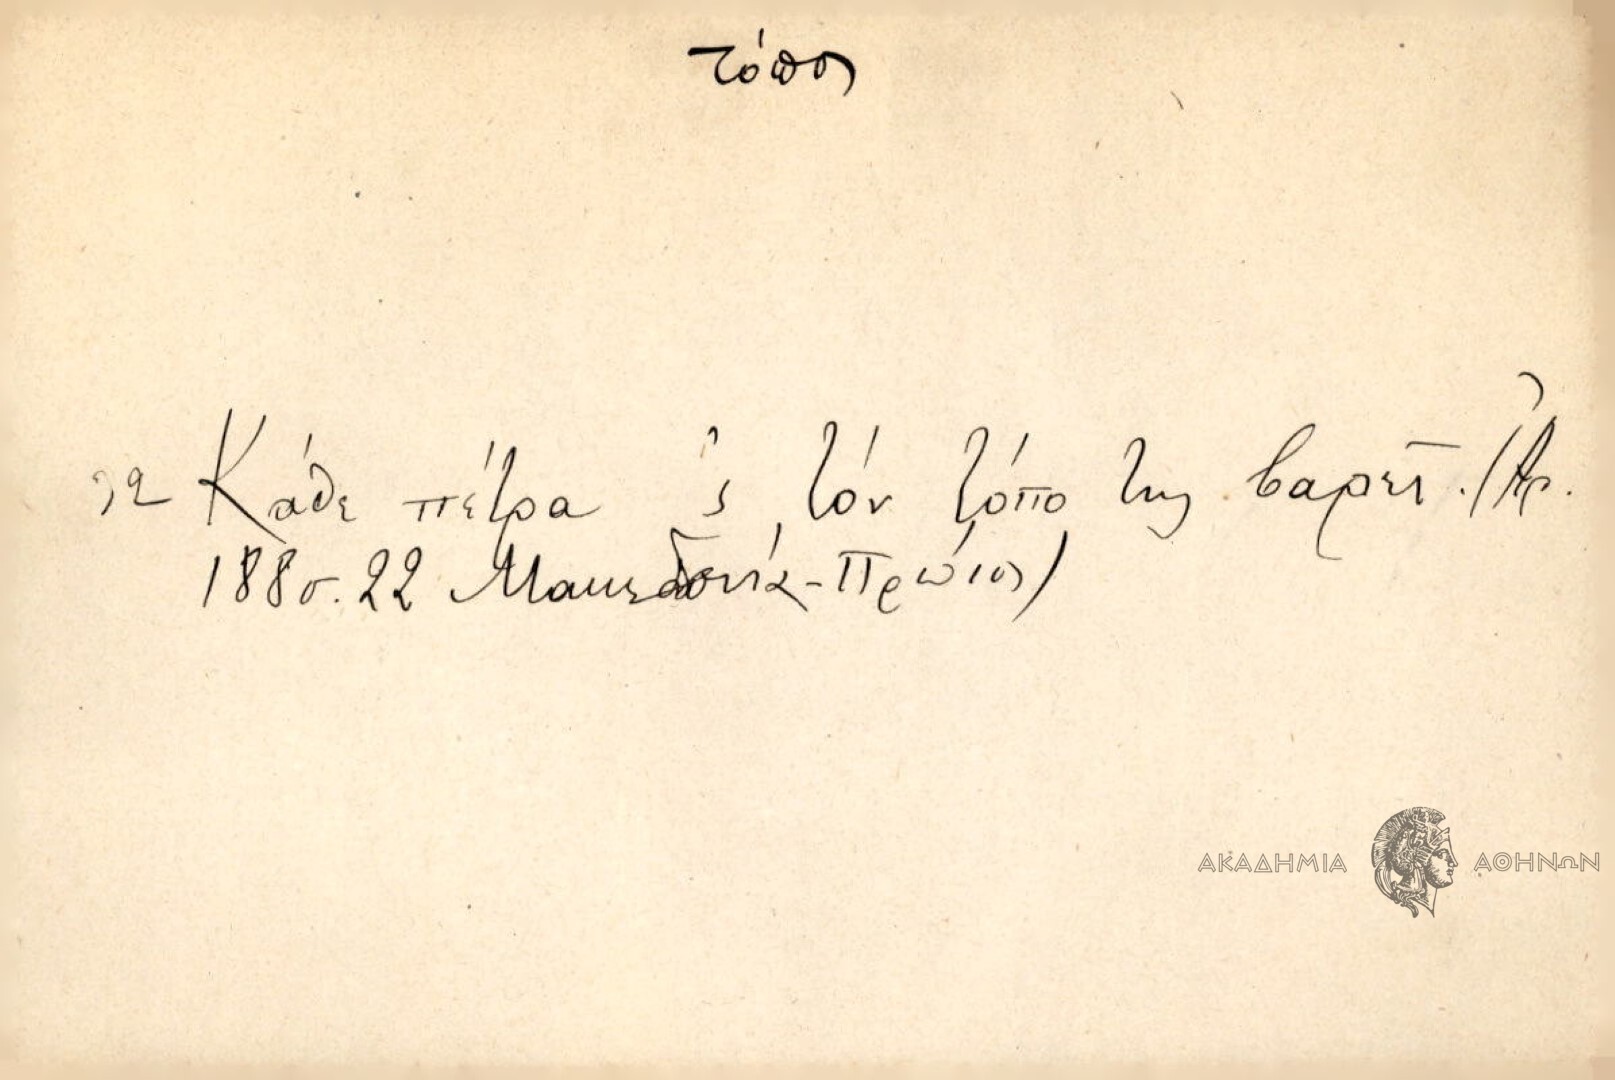 τόπος
72 Κάθε πέτρα 'ς τὸν τόπο της βαρεῖ. (Ἀρ.
188 σ. 22 Μακεδονία - Πρώιος)
ΑΚΑΔΗΜΙΑ ΑΘΗΝΩΝ